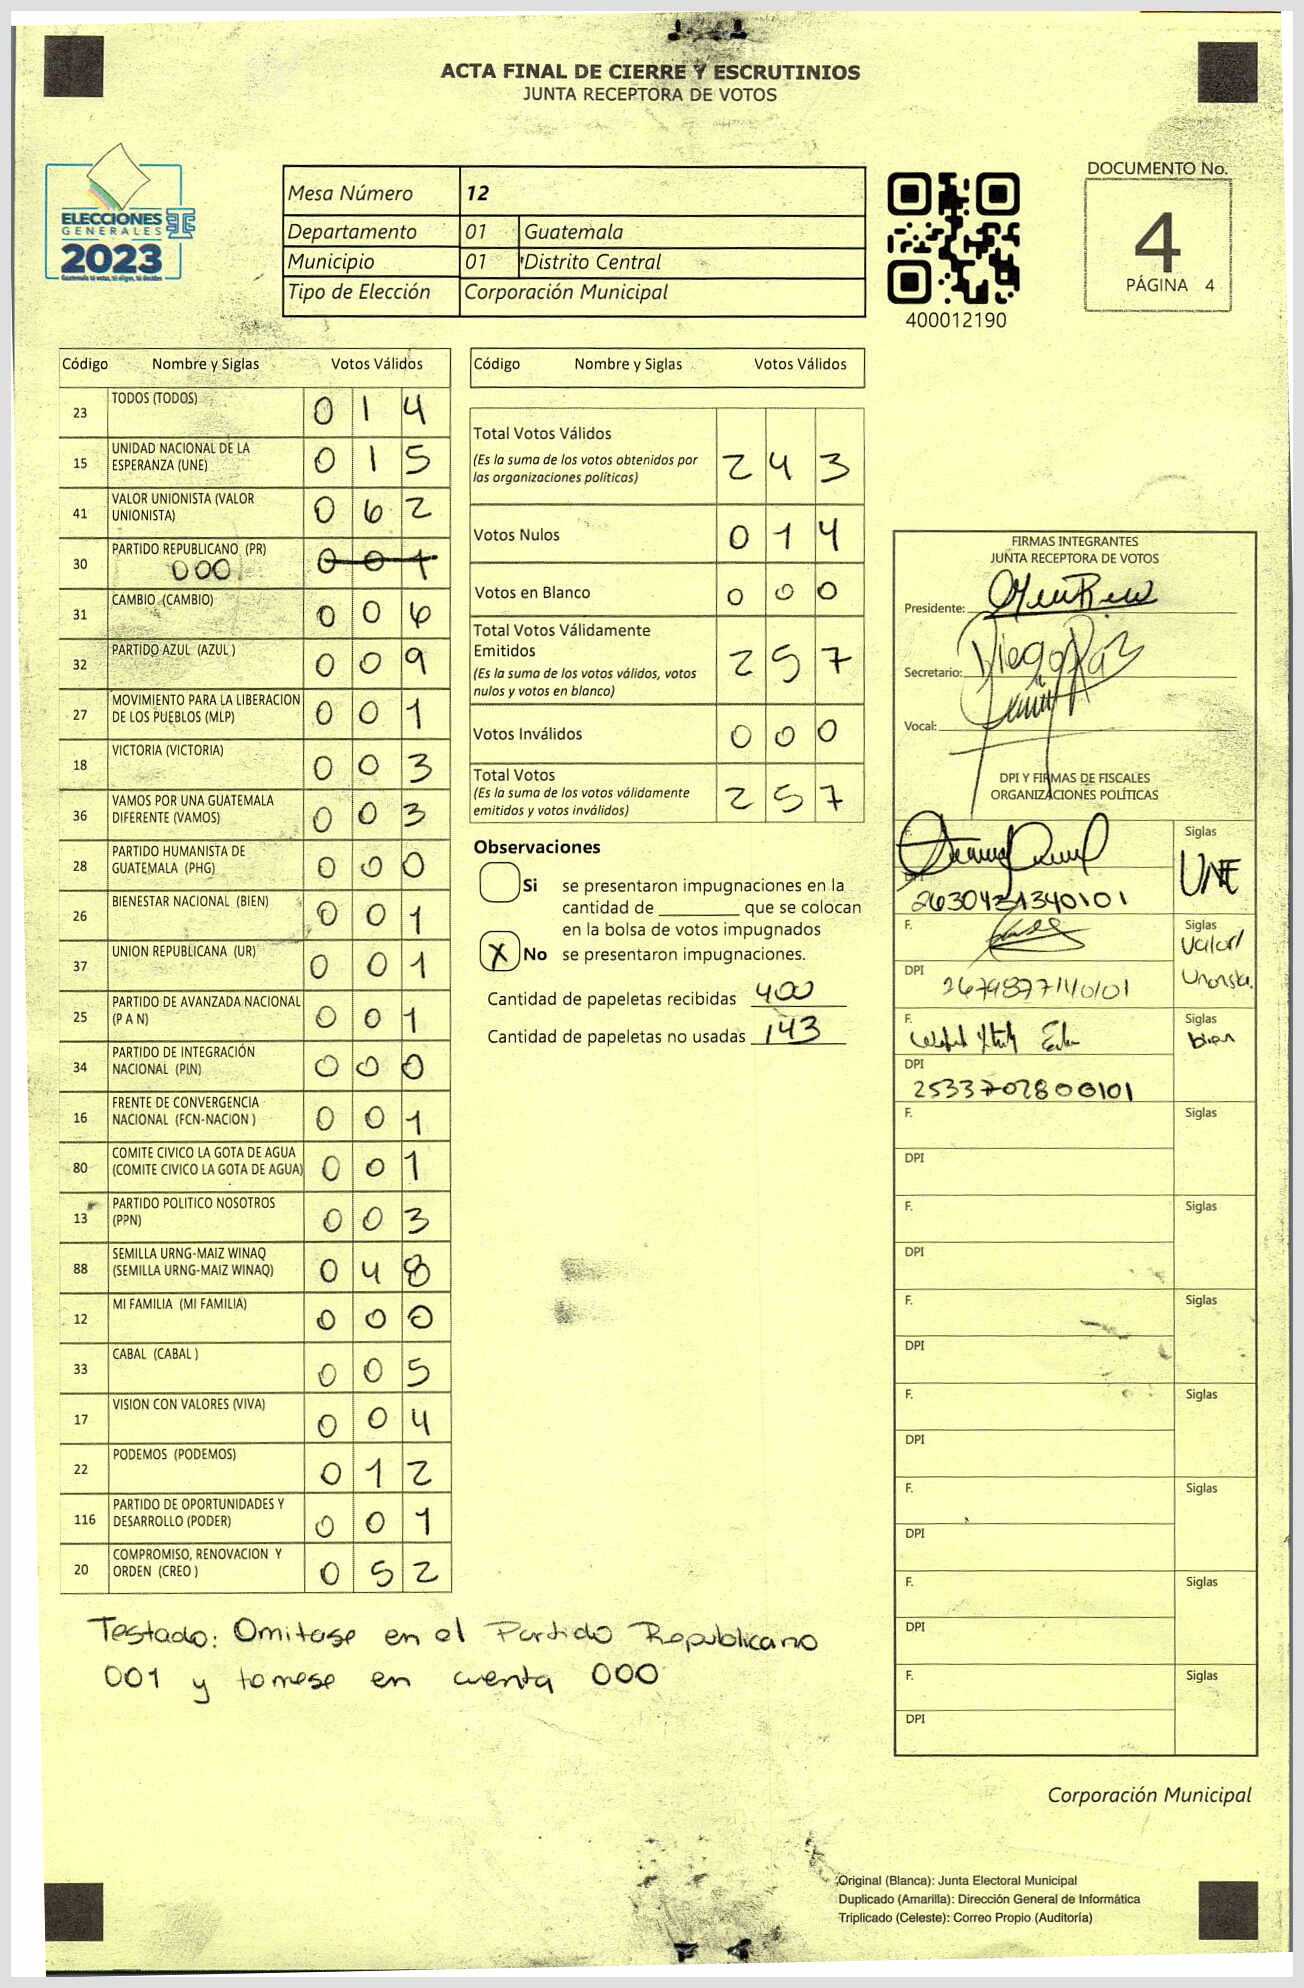 ACTA FINAL DE CIERRE Y ESCRUTINIOS
JUNTA RECEPTORA DE VOTOS
ELECCIONES
GENERALES
2023
Guatemala tú votas, tú eliges, tú decides
Mesa Número 12
Departamento 01 Guatemala
Municipio 01 Distrito Central
Tipo de Elección Corporación Municipal
400012190
DOCUMENTO No.
4
PÁGINA 4
Código Nombre y Siglas Votos Válidos
23 TODOS (TODOS) 0 1 4
15 UNIDAD NACIONAL DE LA
ESPERANZA (UNE) 0 1 5
41 VALOR UNIONISTA (VALOR
UNIONISTA) 0 6 2
30 PARTIDO REPUBLICANO (PR) 0 0 1
000
31 CAMBIO (CAMBIO) 0 0 6
32 PARTIDO AZUL (AZUL ) 0 0 9
27 MOVIMIENTO PARA LA LIBERACION
DE LOS PUEBLOS (MLP) 0 0 1
18 VICTORIA (VICTORIA) 0 0 3
36 VAMOS POR UNA GUATEMALA
DIFERENTE (VAMOS) 0 0 3
28 PARTIDO HUMANISTA DE
GUATEMALA (PHG) 0 0 0
26 BIENESTAR NACIONAL (BIEN) 0 0 1
37 UNION REPUBLICANA (UR) 0 0 1
25 PARTIDO DE AVANZADA NACIONAL
(P A N) 0 0 1
34 PARTIDO DE INTEGRACIÓN
NACIONAL (PIN) 0 0 0
16 FRENTE DE CONVERGENCIA
NACIONAL (FCN-NACION ) 0 0 1
80 COMITE CIVICO LA GOTA DE AGUA
(COMITE CIVICO LA GOTA DE AGUA) 0 0 1
13 PARTIDO POLITICO NOSOTROS
(PPN) 0 0 3
88 SEMILLA URNG-MAIZ WINAQ
(SEMILLA URNG-MAIZ WINAQ) 0 4 8
12 MI FAMILIA (MI FAMILIA) 0 0 0
33 CABAL (CABAL ) 0 0 5
17 VISION CON VALORES (VIVA) 0 0 4
22 PODEMOS (PODEMOS) 0 1 2
116 PARTIDO DE OPORTUNIDADES Y
DESARROLLO (PODER) 0 0 1
20 COMPROMISO, RENOVACION Y
ORDEN (CREO ) 0 5 2
Testado: Omitase en el Partido Republicano
001 y tomese en cuenta 000
Código Nombre y Siglas Votos Válidos
Total Votos Válidos
(Es la suma de los votos obtenidos por
las organizaciones políticas) 2 4 3
Votos Nulos 0 1 4
Votos en Blanco 0 0 0
Total Votos Válidamente
Emitidos
(Es la suma de los votos válidos, votos
nulos y votos en blanco) 2 5 7
Votos Inválidos 0 0 0
Total Votos
(Es la suma de los votos válidamente
emitidos y votos inválidos) 2 5 7
Observaciones
Si se presentaron impugnaciones en la
cantidad de ________ que se colocan
en la bolsa de votos impugnados
X No se presentaron impugnaciones.
Cantidad de papeletas recibidas 400
Cantidad de papeletas no usadas 143
FIRMAS INTEGRANTES
JUNTA RECEPTORA DE VOTOS
Presidente:
Secretario: Diego
Vocal:
DPI Y FIRMAS DE FISCALES
ORGANIZACIONES POLÍTICAS
F. Siglas
UNE
DPI 2630431340101
F. Siglas
Valor/
Unionista
DPI 2679877140101
F. Siglas
bien
DPI
2533702800101
F. Siglas
DPI
F. Siglas
DPI
F. Siglas
DPI
F. Siglas
DPI
F. Siglas
DPI
F. Siglas
DPI
F. Siglas
DPI
Corporación Municipal
Original (Blanca): Junta Electoral Municipal
Duplicado (Amarilla): Dirección General de Informática
Triplicado (Celeste): Correo Propio (Auditoría)